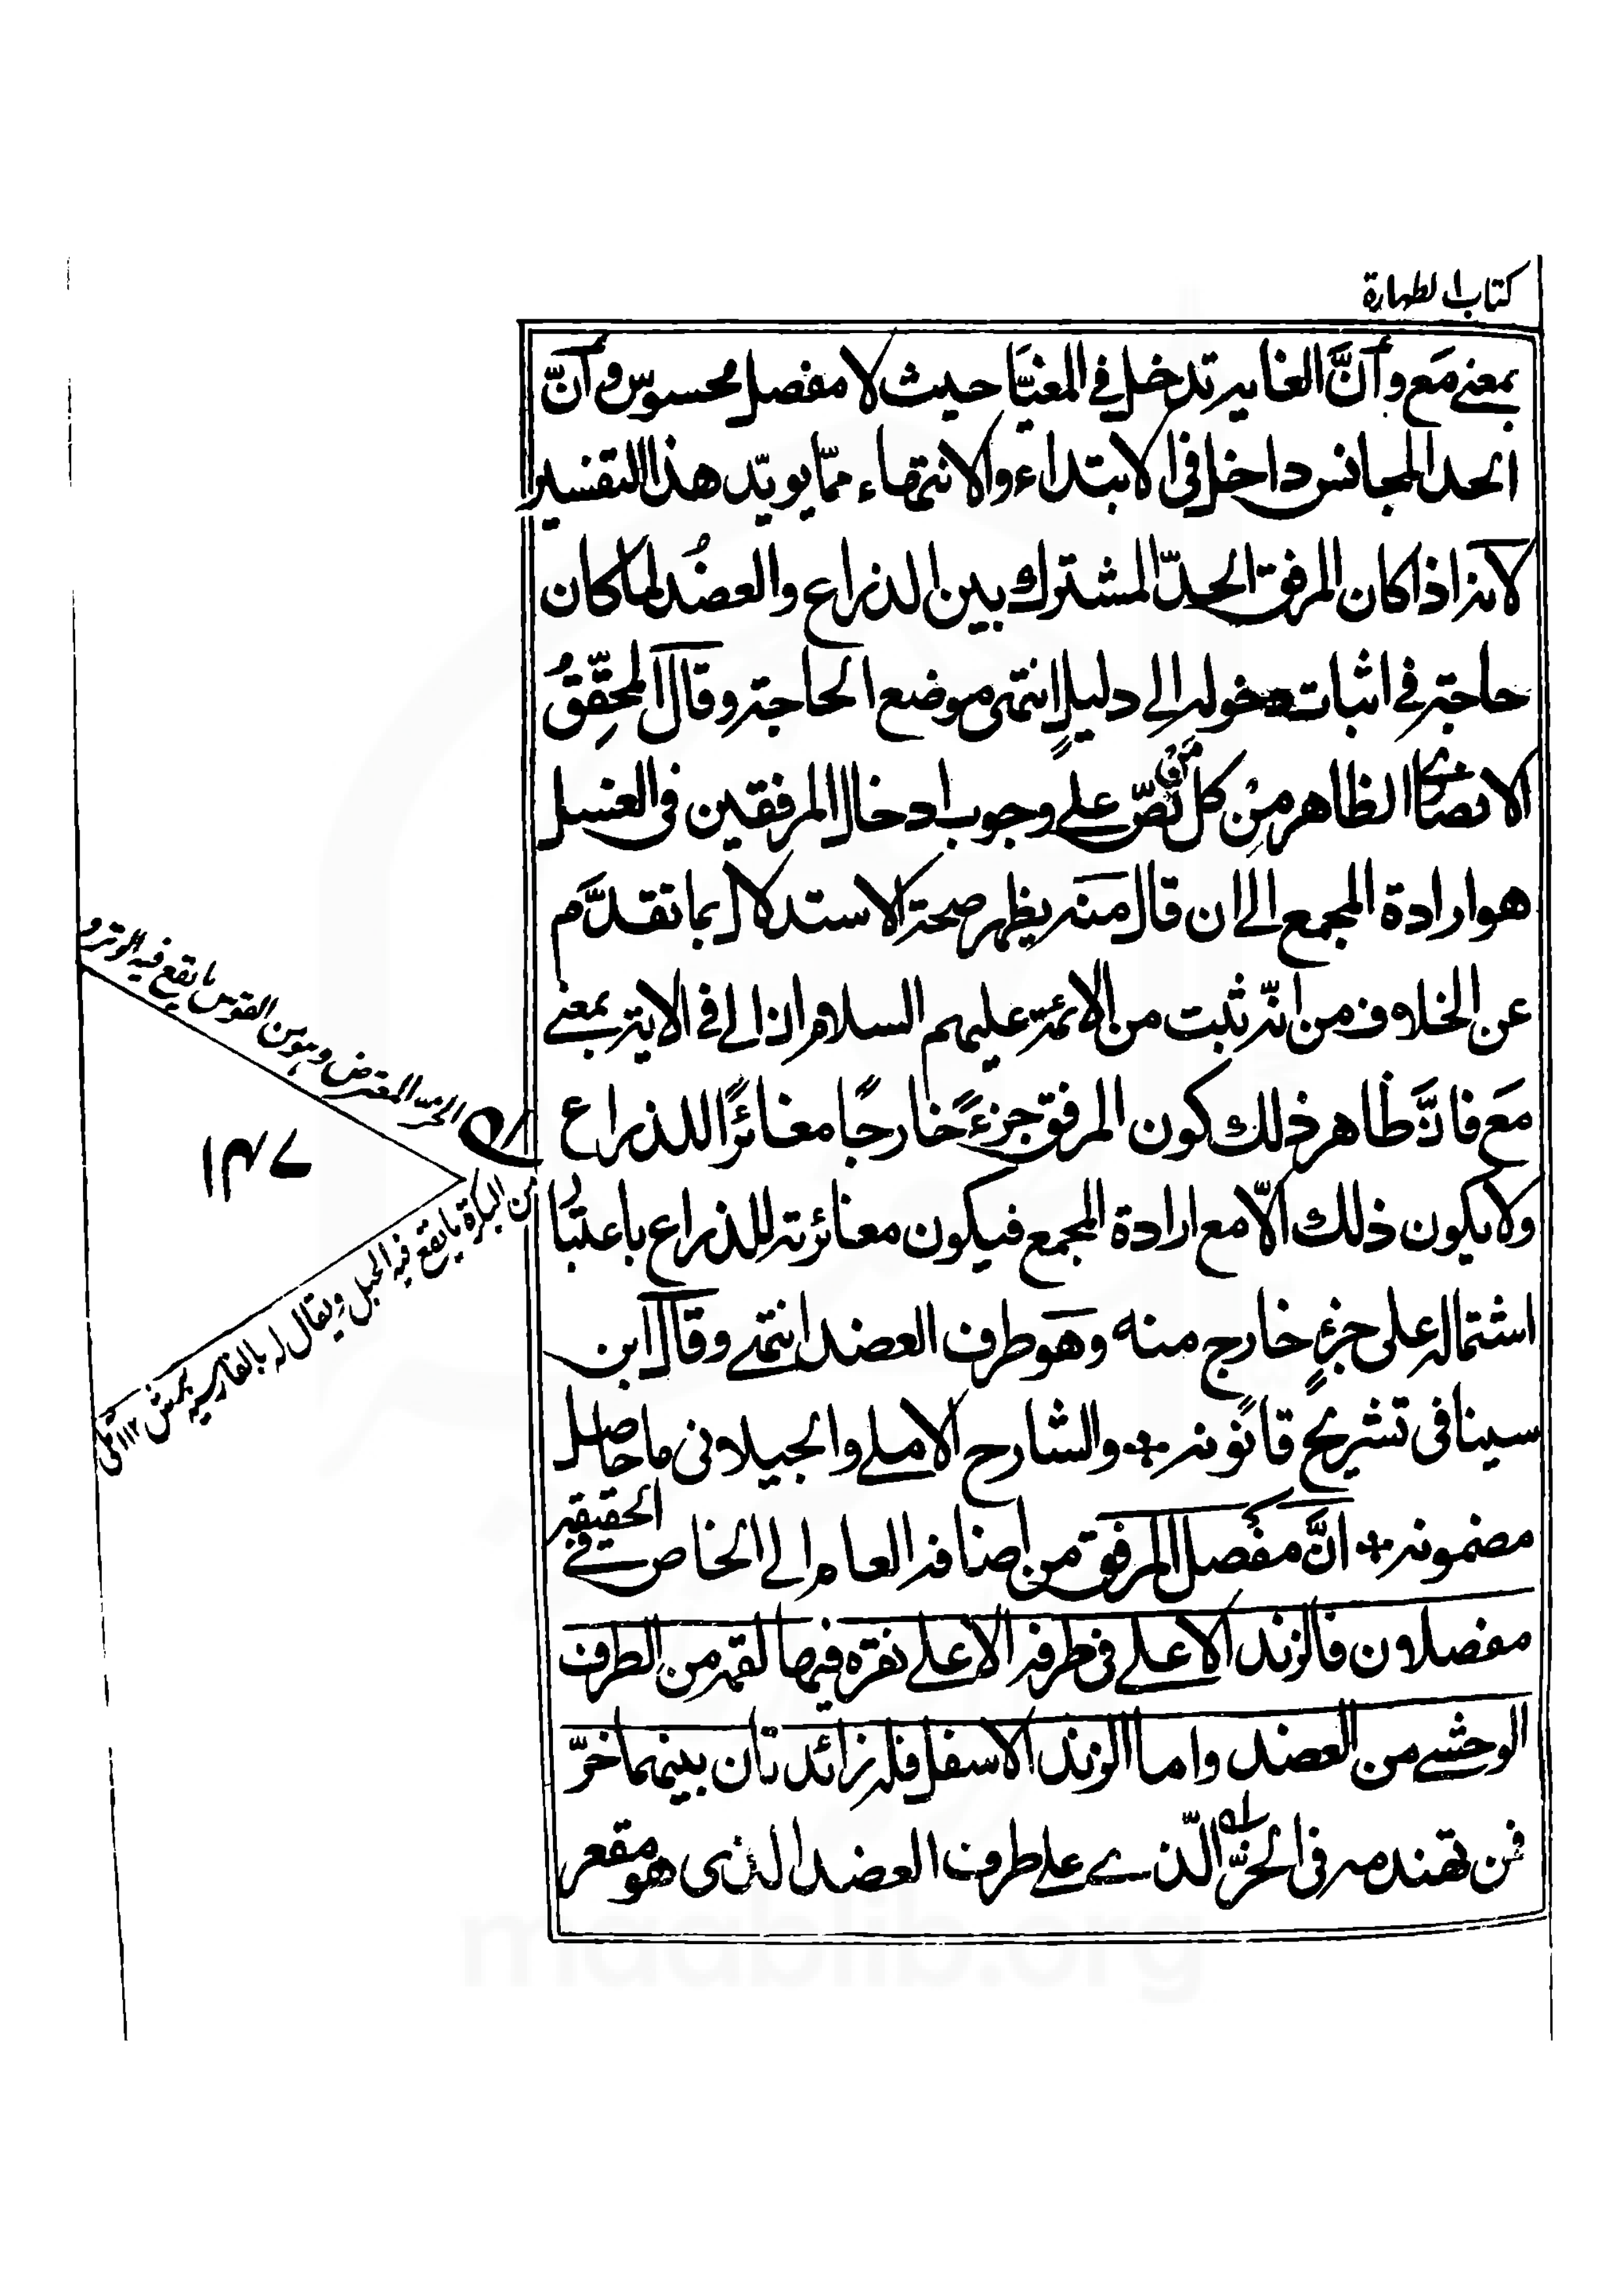 كتاب الطهارة
بمعنے مَع و أنَّ الغايه تدخل في المغيَّا حيث لا مفصل محسوس و أنّ
الحد المجانس داخل في الابتداء والانتهاء ممّا يويّد هذا التفسير
لانه اذا كان المرفق الحدّ المشترك بين الذراع والعضُد لما كان
حاجته في اثبات دخوله الى دليلٍ انتهى موضع الحاجة وقال المحقّقُ
الانصاری الظاهر مِن كل مَن نصّ علے وجوب ادخال المرفقين في الغسل
هو ارادة المجمع الى ان قال منه يظهر صحة الاستدلال بما تقدَّم
عن الخلاف من انّه ثبت من الائمة عليهم السلام ان الى في الاية بمعنے
مَع فانَّ ظاهر ذلك كون المرفق جزءً خارجًا مغائرًا للذراع
ولا يكون ذلك الّا مع ارادة المجمع فيكون مغائرته للذراع باعتبار
اشتماله على جزءٍ خارج منه وهو طرف العضد انتهے وقال ابن
سينا فى تشريح قانونه والشارح الاملے والجيلانى ما حاصل
مضمونه انَّ مفصل المرفق من اضافة العام الى الخاص فے الحقيقة
مفصلان فالزند الاعلے فى طرفه الاعلے نقره فيها لقمه من الطرف
الوحشے من العضد واما الزند الاسفل فله زائدتان بينهما حزّ
فى الحزّ الّذے علے طرف العضد الذى هو مقعر
الحزّ المعترض وهو من القوس ما يقع فيه الوتر و
من البكرة ما يقع فيه الحبل ويقال له بالفارسية ١١٢
١٤٧